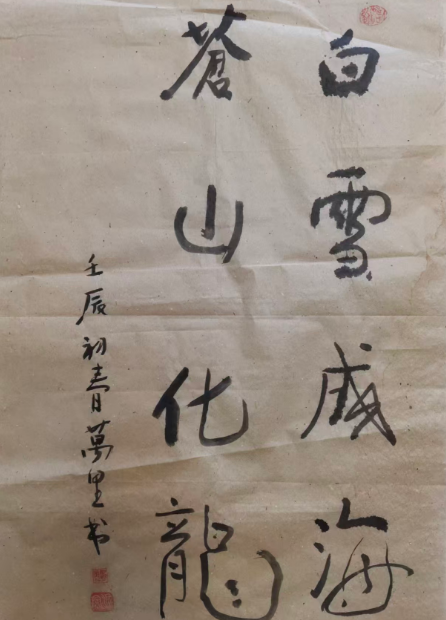 白雪威海
蒼山化龍
壬辰初春日萬里书